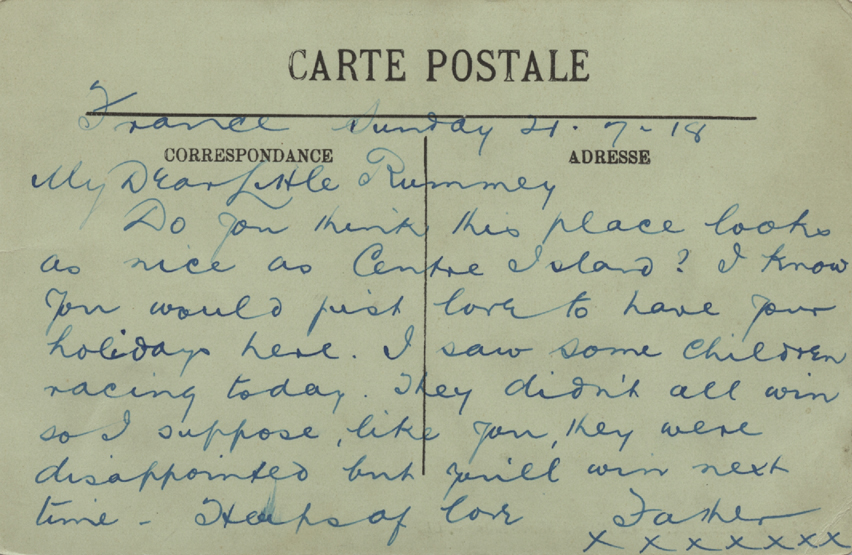 CARTE POSTALE
France Sunday 21.7-18
CORRESPONDANCE
ADRESSE
My Dear Little Rummey
Do you think this place looks
as nice as Centre Island? I know
you would just love to have your
holidays here. I saw some children
racing today. They didn't all win
so I suppose, like you, they were
disappointed but you'll win next
time - Heaps of love Father
x x x x x x x